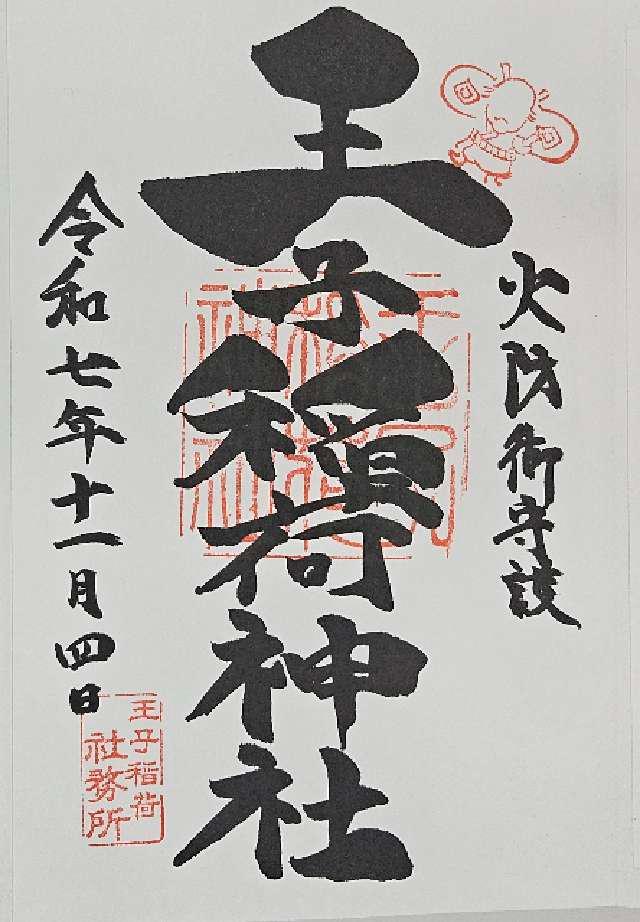 火防御守護
王子稲荷神社
令和七年十一月四日
王子稲荷
社務所